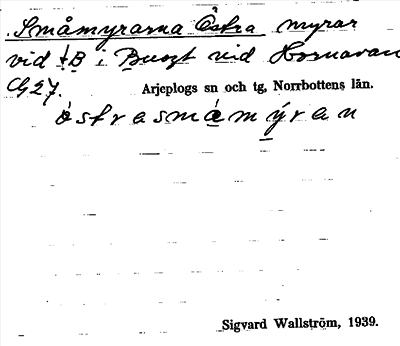 Småmyrarna Östra myrar
vid B i vid Hornavan
G27.
Arjeplogs sn och tg, Norrbottens län.
östrasmåmýran
Sigvard Wallström, 1939.